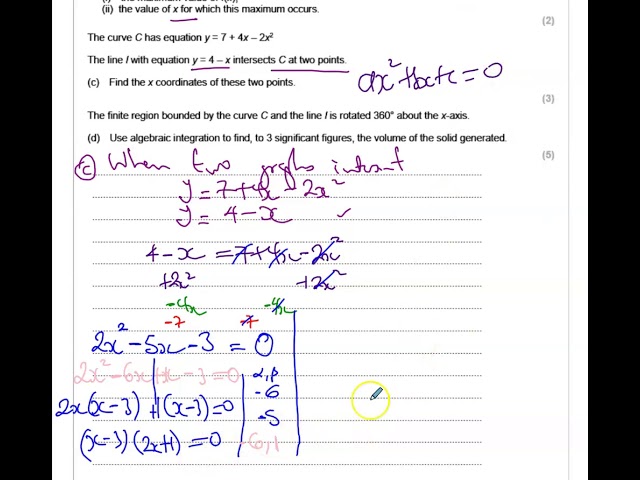 (ii) the value of x for which this maximum occurs.
(2)
The curve C has equation y = 7 + 4x – 2x²
The line l with equation y = 4 – x intersects C at two points.
ax² + bx + c = 0
(c) Find the x coordinates of these two points.
(3)
The finite region bounded by the curve C and the line l is rotated 360° about the x-axis.
(d) Use algebraic integration to find, to 3 significant figures, the volume of the solid generated.
(5)
(c) When two graphs
y = 7+4x - 2x²
y = 4 - x ✓
4 - x = 7+4x - 2x²
+2x² +2x²
-4x -4x
-7 -7
2x² - 5x - 3 = 0
2x² - 6x + x - 3 = 0 α, β
-6
2x(x-3) + 1(x-3) = 0 -5
(x-3)(2x+1) = 0 -6, 1